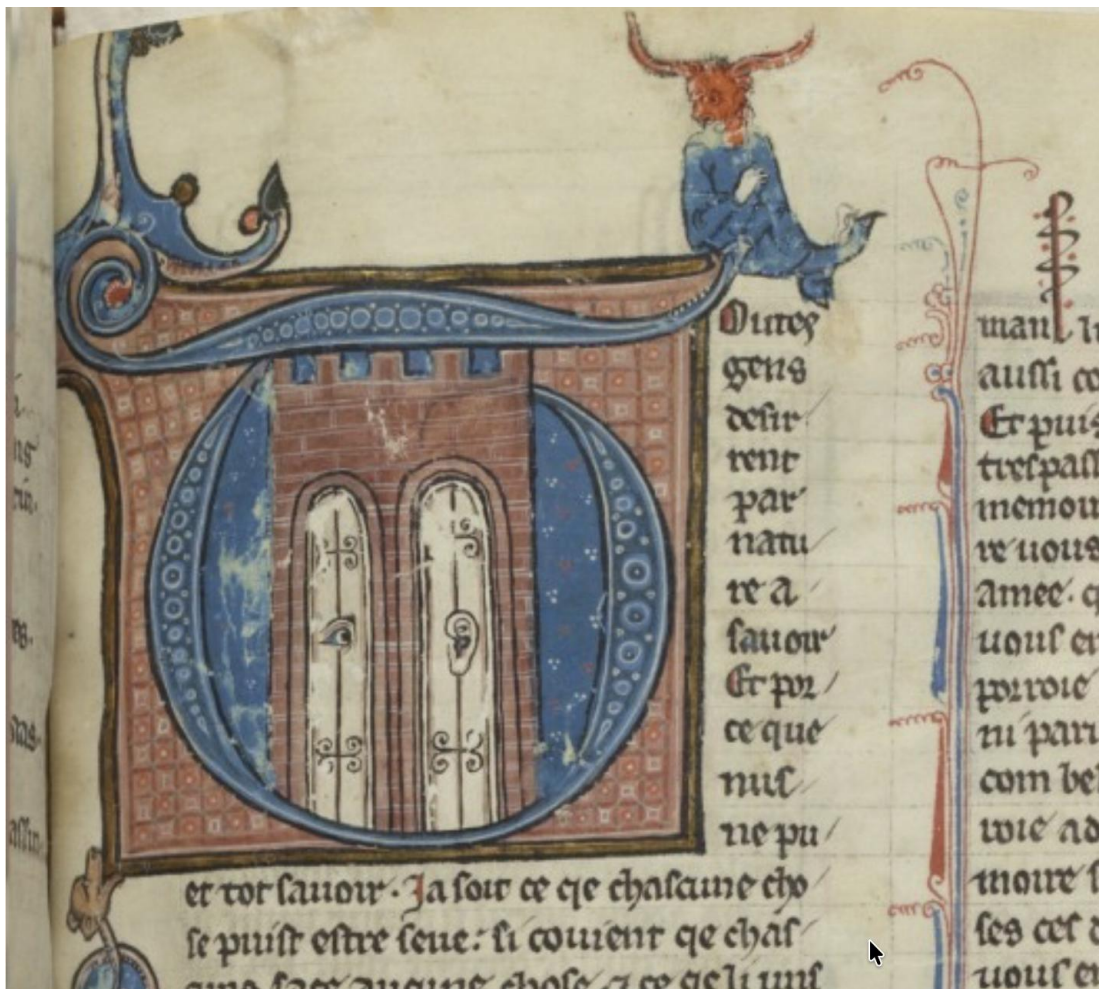 Outes
gens
desir
rent
par
natu
re a
savoir
Et por
ce que
nus
ne pu
et tot savoir. Ja soit ce qe chascune cho
se puist estre seue: si covient qe chas
cune face aucune chose a ce qe li uns
man
aussi co
Et puis
trespass
memoir
re vous
amee. q
vous en
porroie
ni pari
com bel
roie ad
moire s
ses ces
vous en